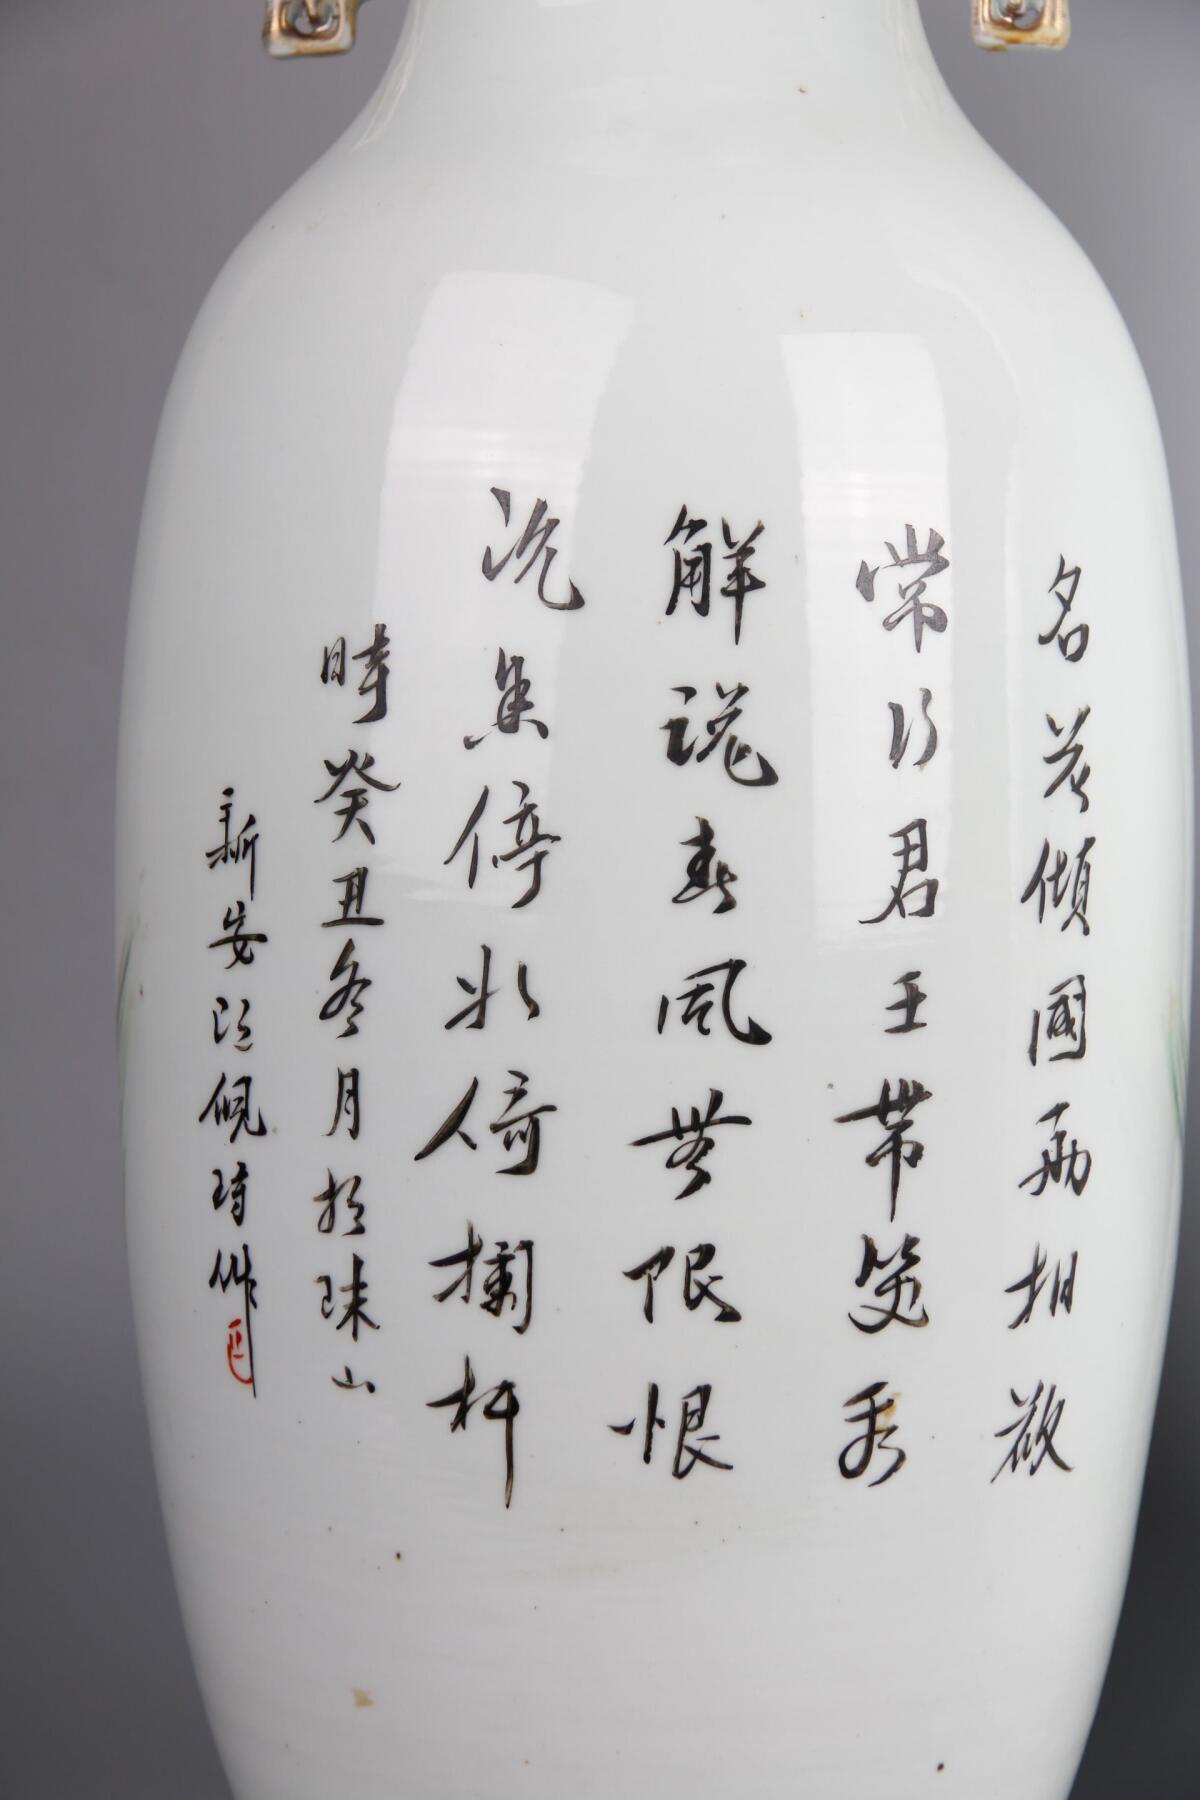 名花傾國兩相歡
常得君王帶笑看
解說春風無限恨
沉香停北倚欄杆
時癸丑冬月於珠山
新安汪佩琦作